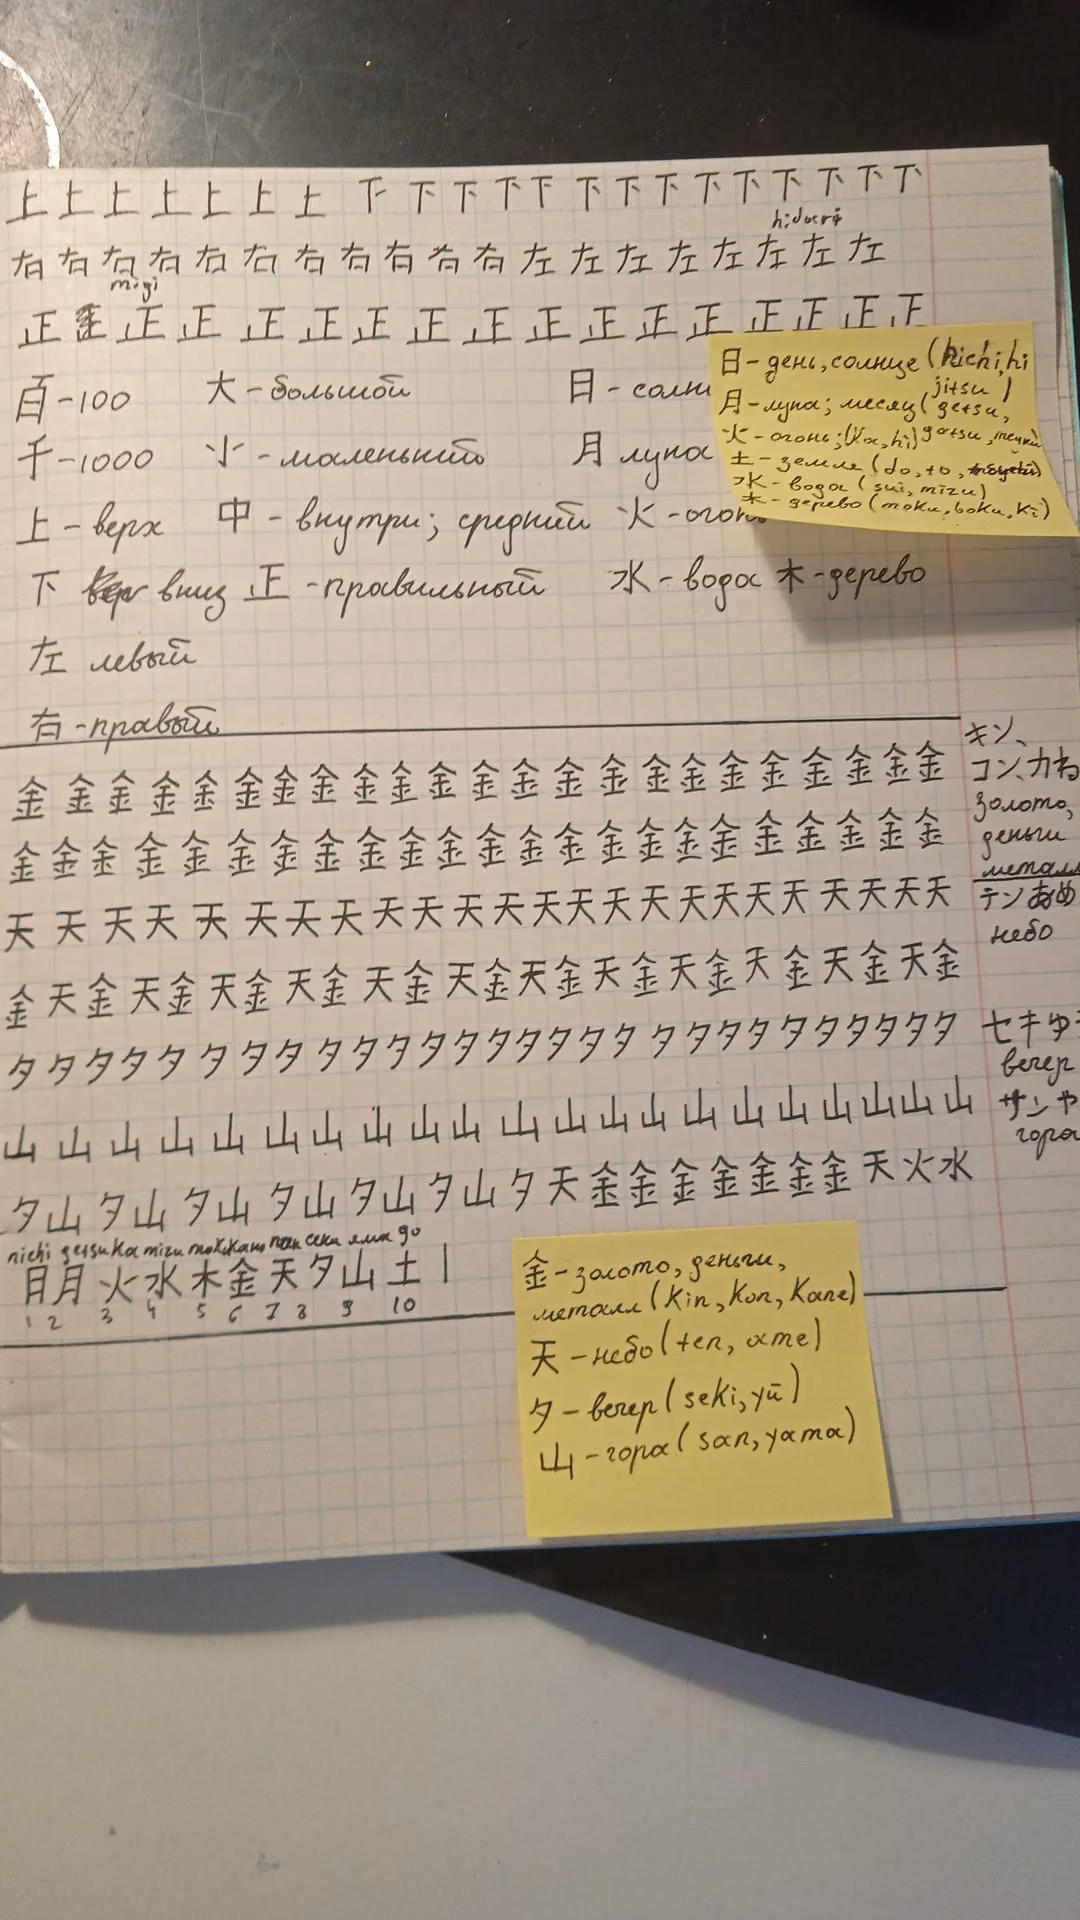 上上上上上上上下下下下下下下下下下下下下下
hidari
右右右右右右右右右右右左左左左左左左左
migi
正正正正正正正正正正正正正正正正正
百-100 大-большой 日-солн
千-1000 小-маленький 月 луна
上-верх 中-внутри; средний 火-огонь
下 вниз 正-правильный 水-вода 木-дерево
左 левый
右-правый
日-день, солнце (nichi, hi
jitsu)
月-луна; месяц (getsu,
火-огонь; (ka, hi) gatsu,
土-земля (do, to,
水-вода (sui, mizu)
木-дерево (moku, boku, ki)
金金金金金金金金金金金金金金金金金金金金金金
金金金金金金金金金金金金金金金金金金金金金
天天天天天天天天天天天天天天天天天天天天天天
金天金天金天金天金天金天金天金天金天金天金天金天金
夕夕夕夕夕夕夕夕夕夕夕夕夕夕夕夕夕夕夕夕夕夕夕夕夕
山山山山山山山山山山山山山山山山山山山山
夕山夕山夕山夕山夕山夕山夕天金金金金金金金天火水
キン、
コン、カね
золото,
деньги
металл
テンあめ
небо
セキゆう
вечер
サンや
гора
nichi getsu ka mizu moku kane ten секи яма do
日月火水木金天夕山土
1 2 3 4 5 6 7 8 9 10
金-золото, деньги,
металл (kin, kon, kane)
天-небо (ten, ame)
夕-вечер (seki, yū)
山-гора (san, yama)